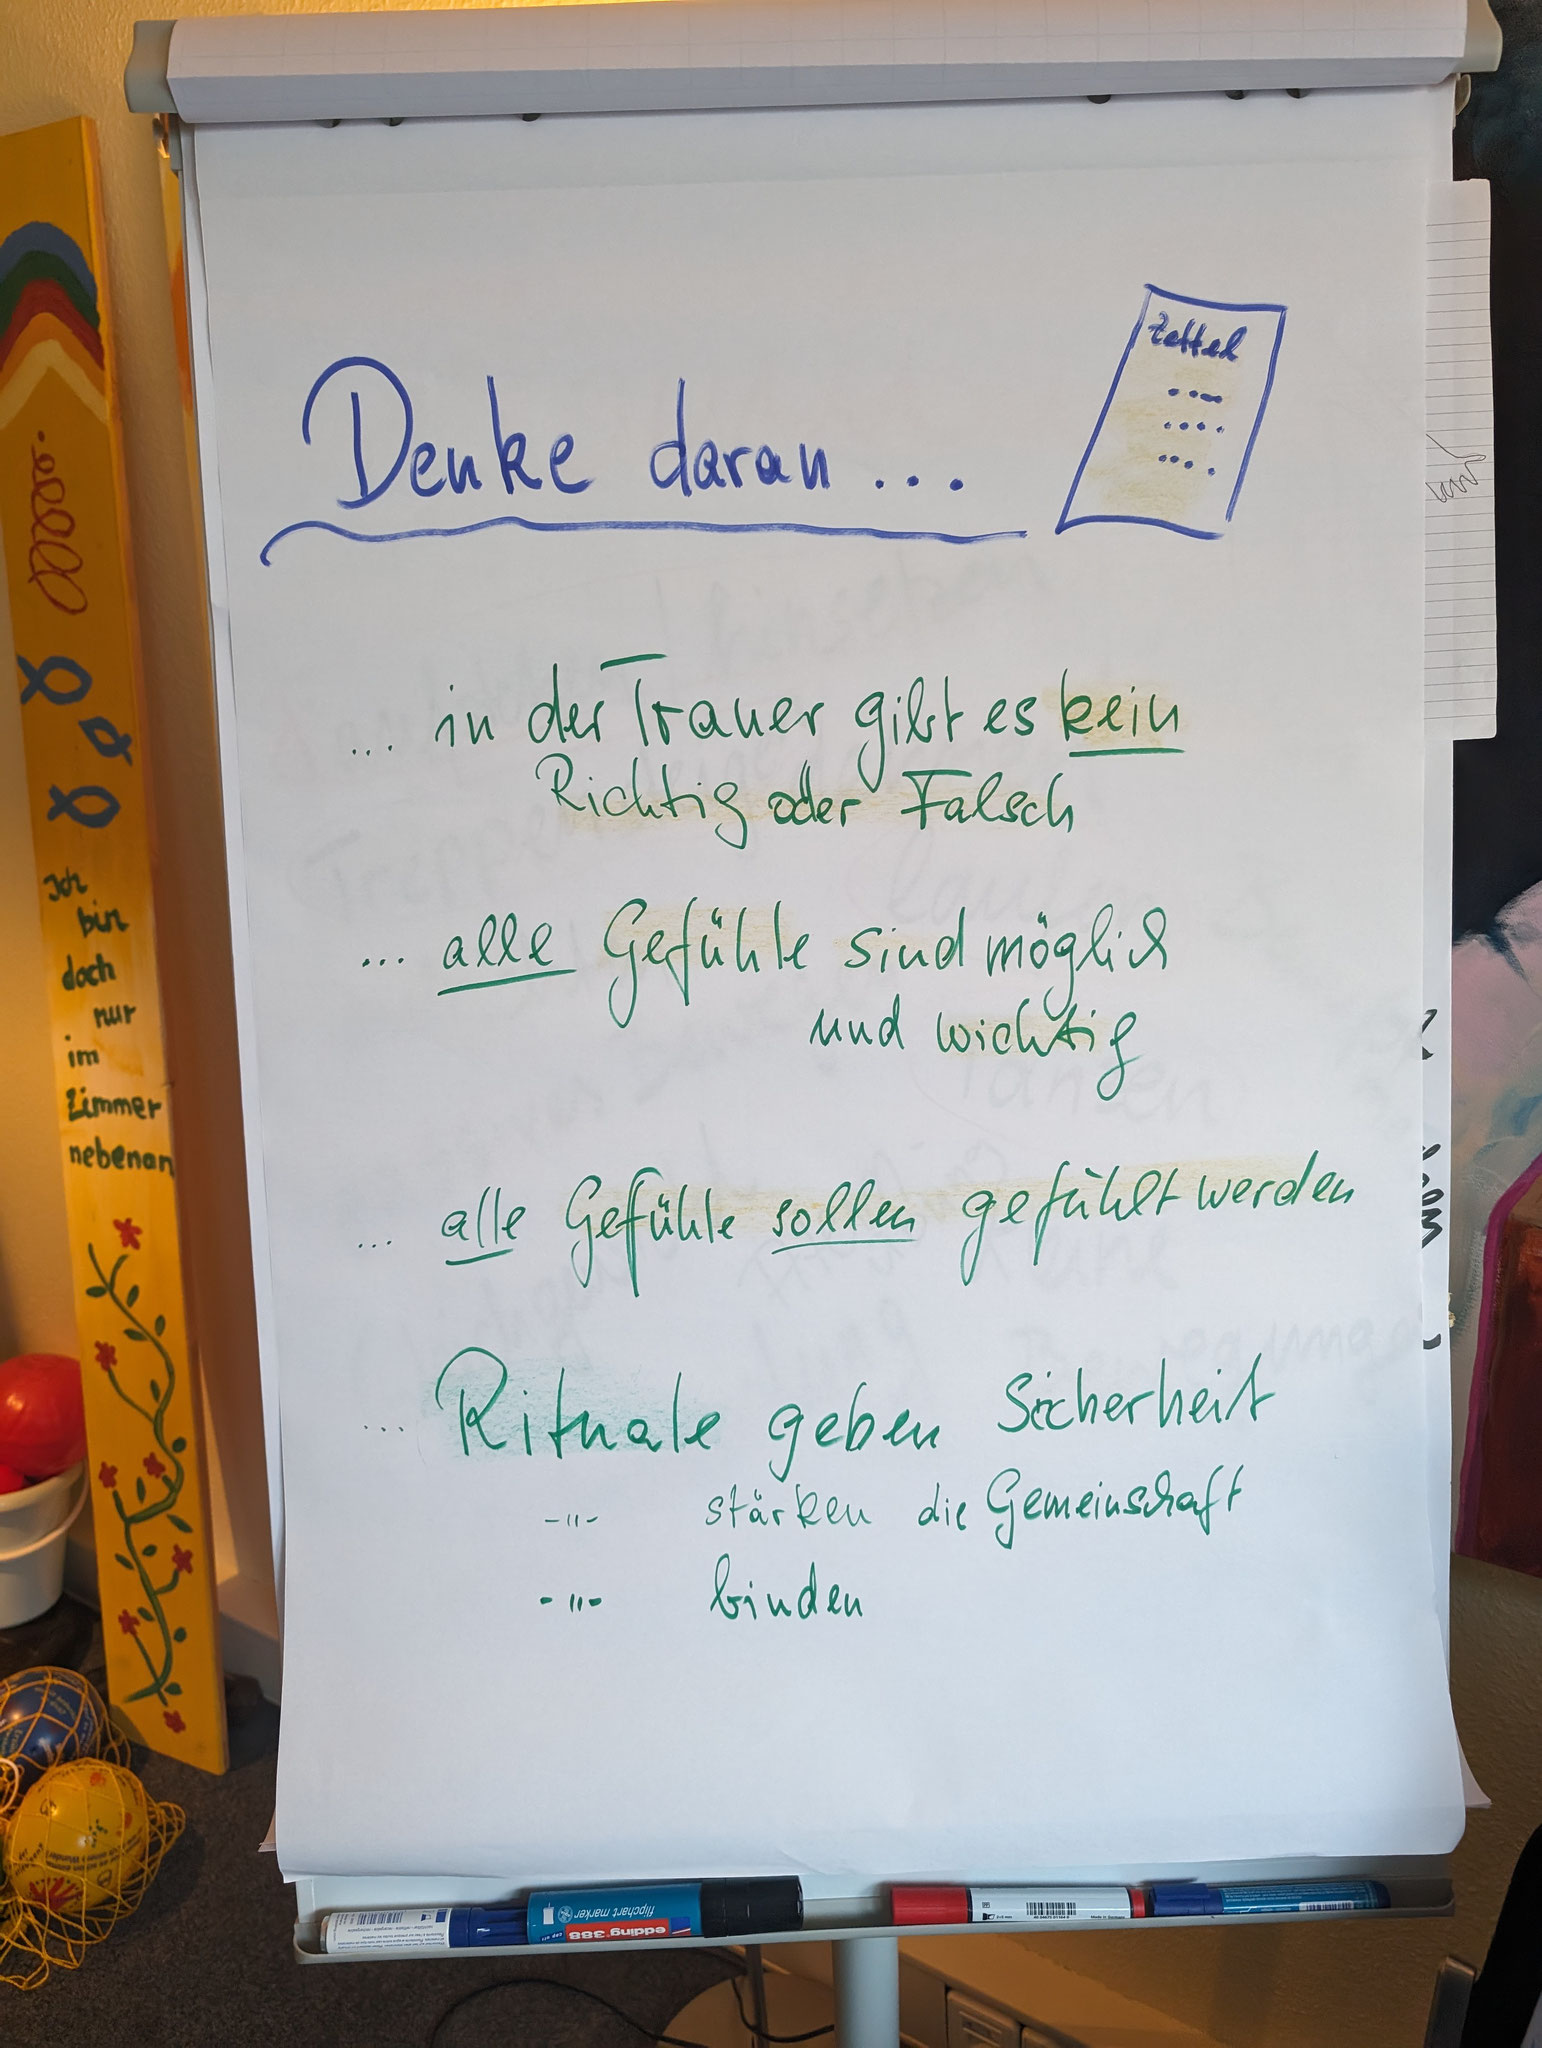 Denke daran ...
Zettel
... in der Trauer gibt es kein
Richtig oder Falsch
... alle Gefühle sind möglich
und wichtig
... alle Gefühle sollen gefühlt werden
... Rituale geben Sicherheit
-"- stärken die Gemeinschaft
-"- binden
Ich
bin
doch
nur
im
Zimmer
nebenan
edding 388
flipchart marker
cap off